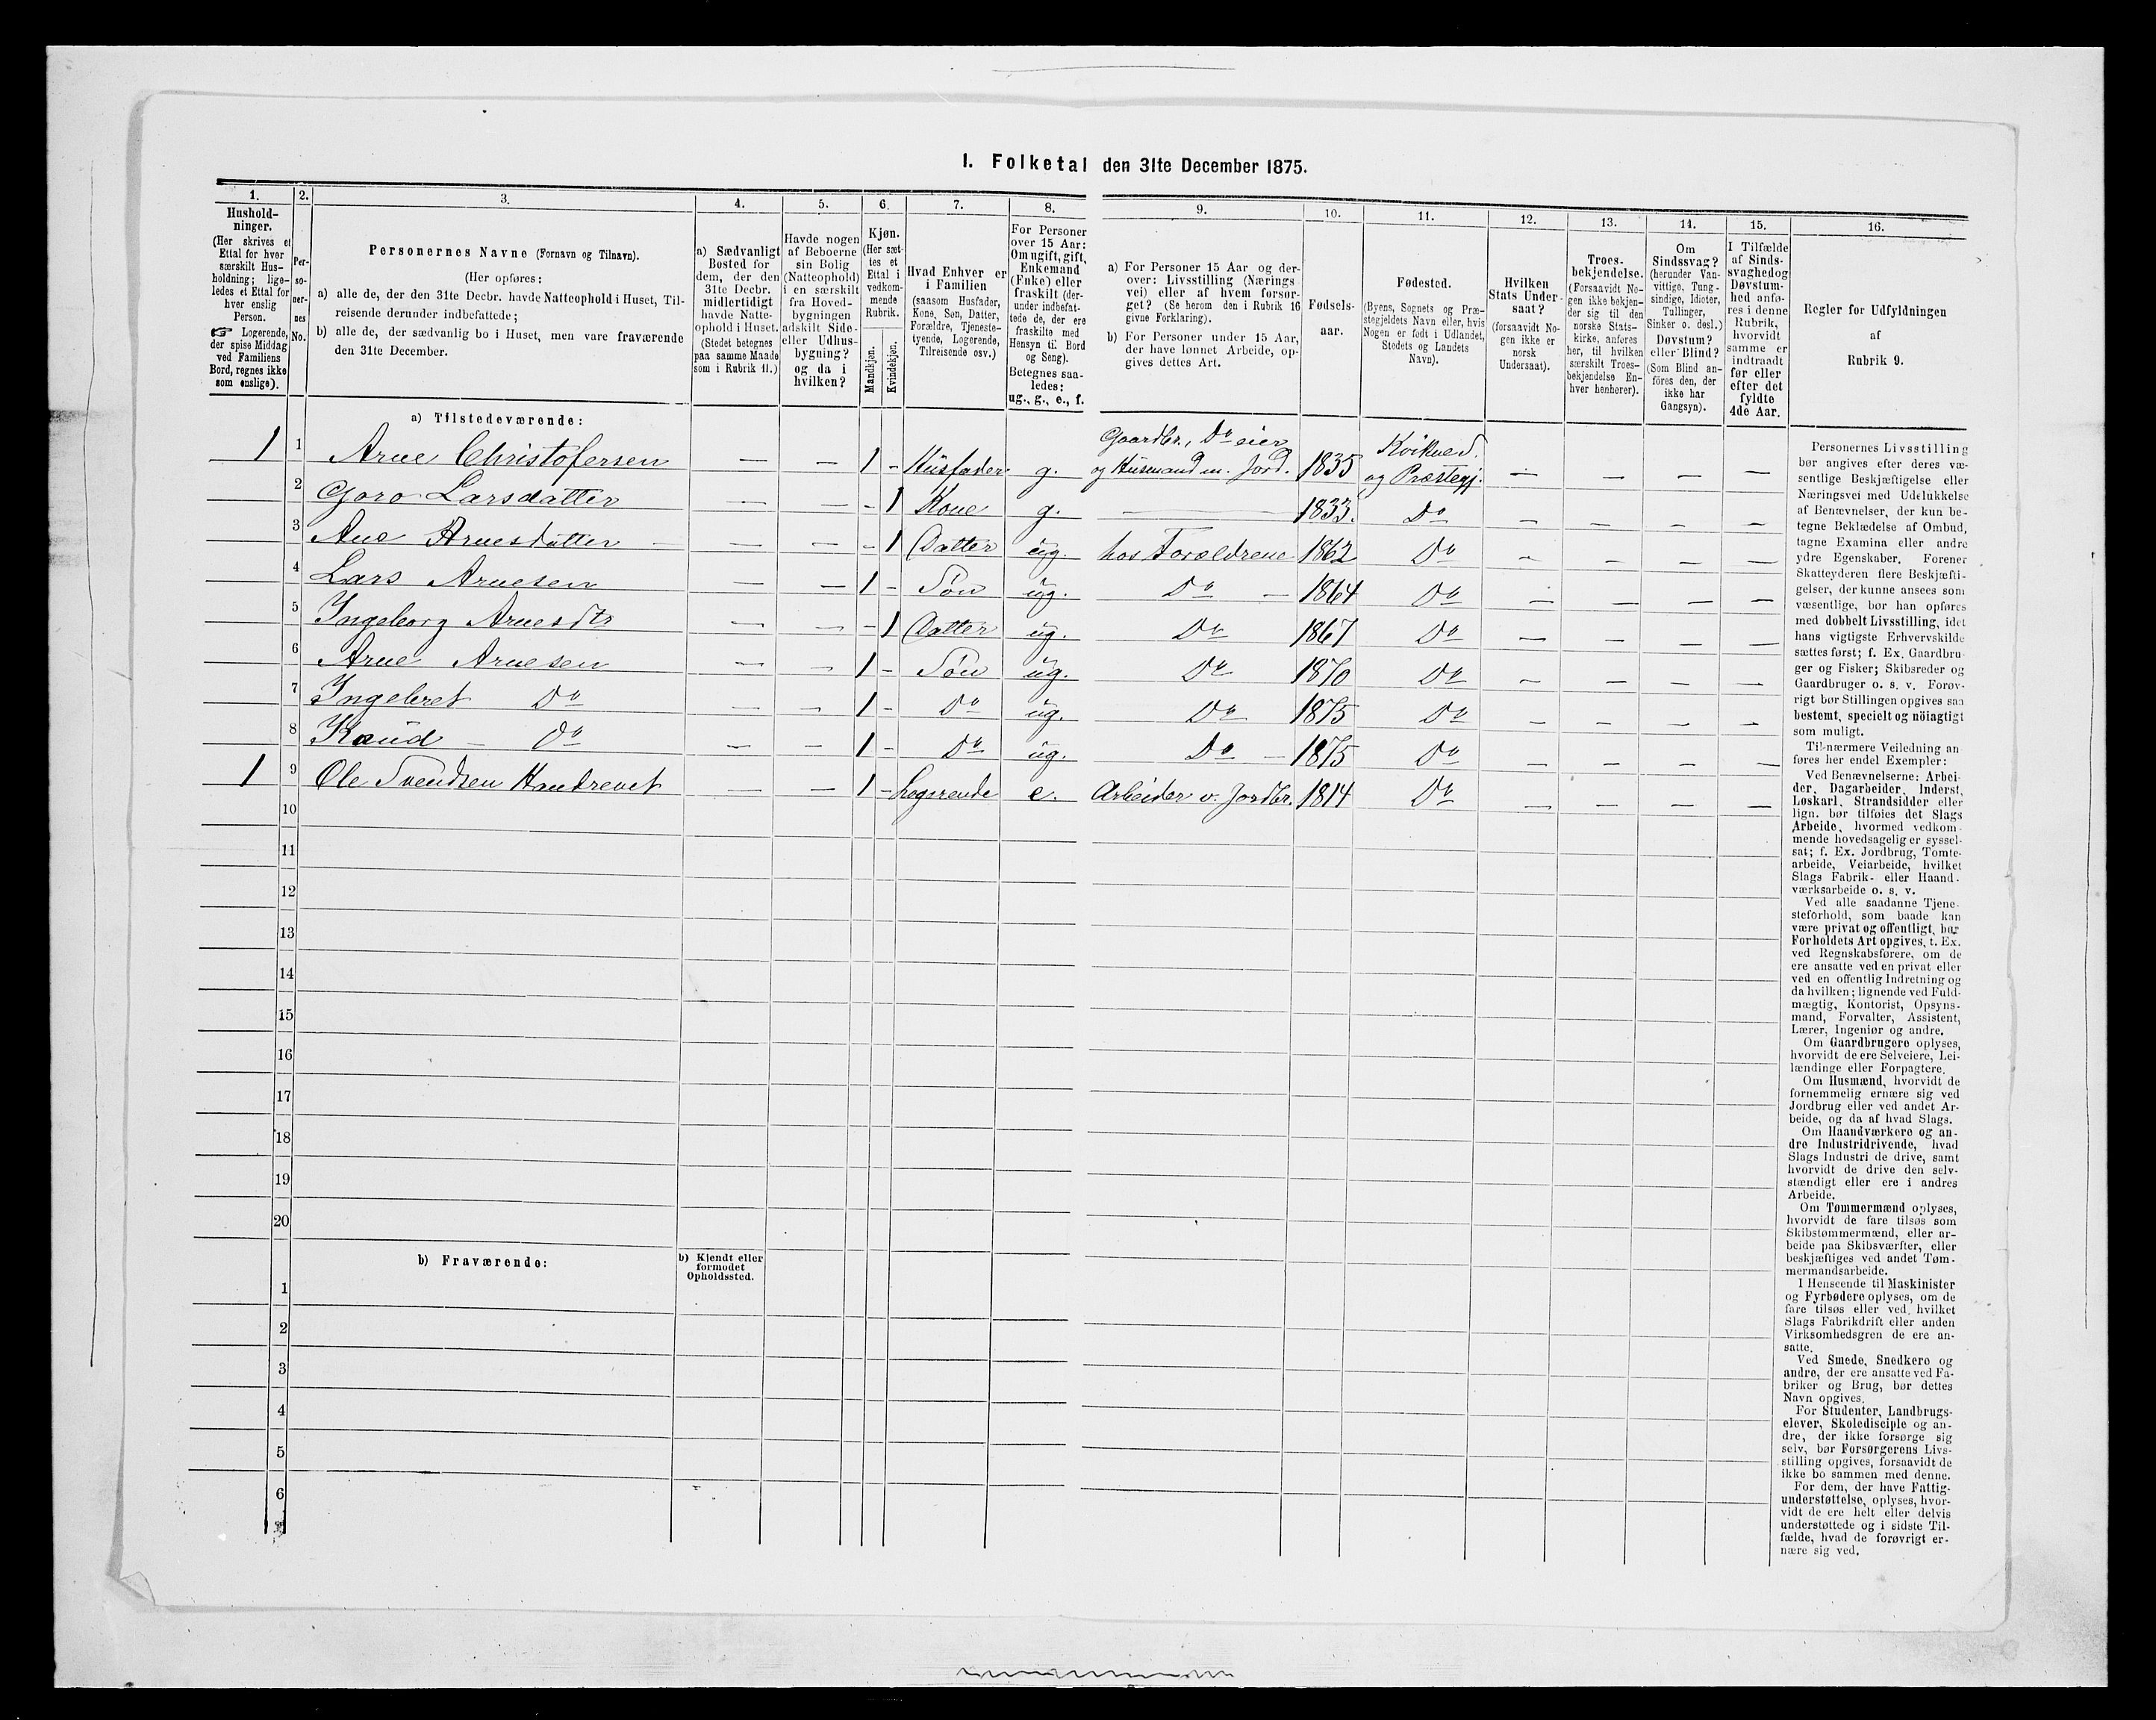 I. Folketal den 31te December 1875.
1.
Hushold-
ninger.
(Her skrives et
Ettal for hver
særskilt Hus-
holdning; lige-
ledes et Ettal for
hver enslig
Person.
☞ Logerende,
der spise Middag
ved Familiens
Bord, regnes ikke
som enslige).
2.
Per-
so-
ner-
nes
No.
3.
Personernes Navne (Fornavn og Tilnavn).
(Her opføres:
a) alle de, der den 31te Decbr. havde Natteophold i Huset, Til-
reisende derunder indbefattede;
b) alle de, der sædvanlig bo i Huset, men vare fraværende
den 31te December.
4.
a) Sædvanligt
Bosted for
dem, der den
31te Decbr.
midlertidigt
havde Natte-
ophold i Huset.
(Stedet betegnes
paa samme Maade
som i Rubrik 11.)
5.
Havde nogen
af Beboerne
sin Bolig
(Natteophold)
i en særskilt
fra Hoved-
bygningen
adskilt Side-
eller Udhus-
bygning?
og da i
hvilken?
6.
Kjøn.
(Her sæt-
tes et
Ettal i
vedkom-
mende
Rubrik.
Mandkjøn.
Kvindekjøn.
7.
Hvad Enhver er
i Familien
(saasom Husfader,
Kone, Søn, Datter,
Forældre, Tjeneste-
tyende, Logerende,
Tilreisende osv.)
8.
For Personer
over 15 Aar:
Om ugift, gift,
Enkemand
(Enke) eller
fraskilt (der-
under indbefat-
tede de, der ere
fraskilte med
Hensyn til Bord
og Seng).
Betegnes saa-
ledes:
ug., g., e., f.
9.
a) For Personer 15 Aar og der-
over: Livsstilling (Nærings-
vei) eller af hvem forsør-
get? (Se herom den i Rubrik 16
givne Forklaring).
b) For Personer under 15 Aar,
der have lønnet Arbeide, op-
gives dettes Art.
10.
Fødsels-
aar.
11.
Fødested.
(Byens, Sognets og Præ-
stegjeldets Navn eller, hvis
Nogen er født i Udlandet,
Stedets og Landets
Navn).
12.
Hvilken
Stats Under-
saat?
(forsaavidt No-
gen ikke er
norsk
Undersaat).
13.
Troes-
bekjendelse.
(Forsaavidt No-
gen ikke bekjen-
der sig til den
norske Stats-
kirke, anføres
her, til hvilken
særskilt Troes-
bekjendelse En-
hver henhører).
14.
Om
Sindssvag?
(herunder Van-
vittige, Tung-
sindige, Idioter,
Tullinger,
Sinker o. desl.)
Døvstum?
eller Blind?
(Som Blind an-
føres den, der
ikke har
Gangsyn).
15.
I Tilfælde
af Sinds-
svaghed og
Døvstum-
hed anfø-
res i denne
Rubrik,
hvorvidt
samme er
indtraadt
før eller
efter det
fyldte
4de Aar.
16.
Regler for Udfyldningen
af
Rubrik 9.
a) Tilstedeværende:
1 1 Arne Christofersen — — 1 – Husfader g. Gaardbr., Do eier og Husmand m. Jord. 1835 Kvikned. og Præstegj. — — — —
2 Goro Larsdatter — — – 1 Kone g. — 1833. Do — — — —
3 Ane Arnesdatter — — – 1 Datter ug. hos Forældrene 1862 Do — — — —
4 Lars Arnesen — — 1 – Søn ug. Do — 1864 Do — — — —
5 Ingeborg Arnesdtr — — – 1 Datter ug. Do 1867 Do — — — —
6 Arne Arnesen — — 1 – Søn ug. Do 1870 Do — — — —
7 Ingebret Do — — 1 – Do ug. Do 1875 Do — — — —
8 Knud — Do — — 1 – Do ug. Do — 1875 Do — — — —
1 9 Ole Svendsen — — 1 – Logerende e. Arbeider v. Jordbr. 1814 Do — — — —
10
11
12
13
14
15
16
17
18
19
20
b) Fraværende:
b) Kjendt eller
formodet
Opholdssted.
1
2
3
4
5
6
Personernes Livsstilling
bør angives efter deres væ-
sentlige Beskjæftigelse eller
Næringsvei med Udelukkelse
af Benævnelser, der kun be-
tegne Beklædelse af Ombud,
tagne Examina eller andre
ydre Egenskaber. Forener
Skatteyderen flere Beskjæfti-
gelser, der kunne ansees som
væsentlige, bør han opføres
med dobbelt Livsstilling, idet
hans vigtigste Erhvervskilde
sættes først; f. Ex. Gaardbru-
ger og Fisker; Skibsreder og
Gaardbruger o. s. v. Forøv-
rigt bør Stillingen opgives saa
bestemt, specielt og nöiagtigt
som muligt.
Til nærmere Veiledning an-
føres her endel Exempler:
Ved Benævnelserne: Arbei-
der, Dagarbeider, Inderst,
Løskarl, Strandsidder eller
lign. bør tilføies det Slags
Arbeide, hvormed vedkom-
mende hovedsagelig er syssel-
sat; f. Ex. Jordbrug, Tomte-
arbeide, Veiarbeide, hvilket
Slags Fabrik- eller Haand-
værksarbeide o. s. v.
Ved alle saadanne Tjene-
steforhold, som baade kan
være privat og offentligt, bør
Forholdets Art opgives, t. Ex.
ved Regnskabsførere, om de
ere ansatte ved en privat eller
ved en offentlig Indretning og
da hvilken; lignende ved Fuld-
mægtig, Kontorist, Opsyns-
mand, Forvalter, Assistent,
Lærer, Ingeniør og andre.
Om Gaardbrugere oplyses,
hvorvidt de ere Selveiere, Lei-
lændinge eller Forpagtere.
Om Husmænd, hvorvidt de
fornemmelig ernære sig ved
Jordbrug eller ved andet Ar-
beide, og da af hvad Slags.
Om Haandværkere og an-
dre Industridrivende, hvad
Slags Industri de drive, samt
hvorvidt de drive den selv-
stændigt eller ere i andres
Arbeide.
Om Tømmermænd oplyses,
hvorvidt de fare tilsøs som
Skibstømmermænd, eller ar-
beide paa Skibsværfter, eller
beskjæftiges ved andet Tøm-
mermandsarbeide.
I Henseende til Maskinister
og Fyrbødere oplyses, om de
fare tilsøs eller ved hvilket
Slags Fabrikdrift eller anden
Virksomhedsgren de ere an-
satte.
Ved Smede, Snedkere og
andre, der ere ansatte ved Fa-
briker og Brug, bør dettes
Navn opgives.
For Studenter, Landbrugs-
elever, Skoledisciple og an-
dre, der ikke forsørge sig
selv, bør Forsørgerens Livs-
stilling opgives, forsaavidt de
ikke bo sammen med denne.
For dem, der have Fattig-
understøttelse, oplyses, hvor-
vidt de ere helt eller delvis
understøttede og i sidste Til-
fælde, hvad de forøvrigt er-
nære sig ved.